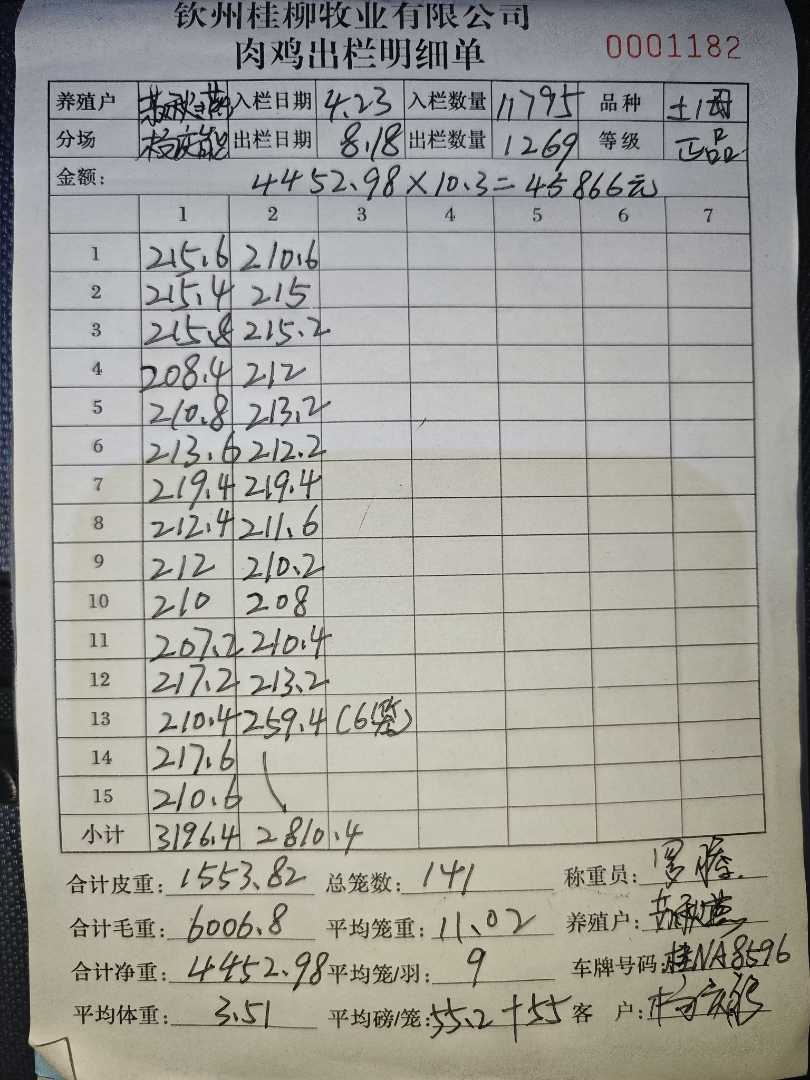 钦州桂柳牧业有限公司
肉鸡出栏明细单 0001182
养殖户 入栏日期 4.23 入栏数量 11795 品种 土1母
分场 出栏日期 8.18 出栏数量 1269 等级 正品
金额: 4452.98×10.3=45866元
1 2 3 4 5 6 7
1 215.6 210.6
2 215.4 215
3 215.8 215.2
4 208.4 212
5 210.8 213.2
6 213.6 212.2
7 219.4 219.4
8 212.4 211.6
9 212 210.2
10 210 208
11 207.2 210.4
12 217.2 213.2
13 210.4 259.4 (6笼)
14 217.6
15 210.6
小计 3196.4 2810.4
合计皮重: 1553.82 总笼数: 141 称重员:
合计毛重: 6006.8 平均笼重: 11.02 养殖户:
合计净重: 4452.98 平均笼/羽: 9 车牌号码: 桂NA8596
平均体重: 3.51 平均磅/笼: 55.2+55 客 户: